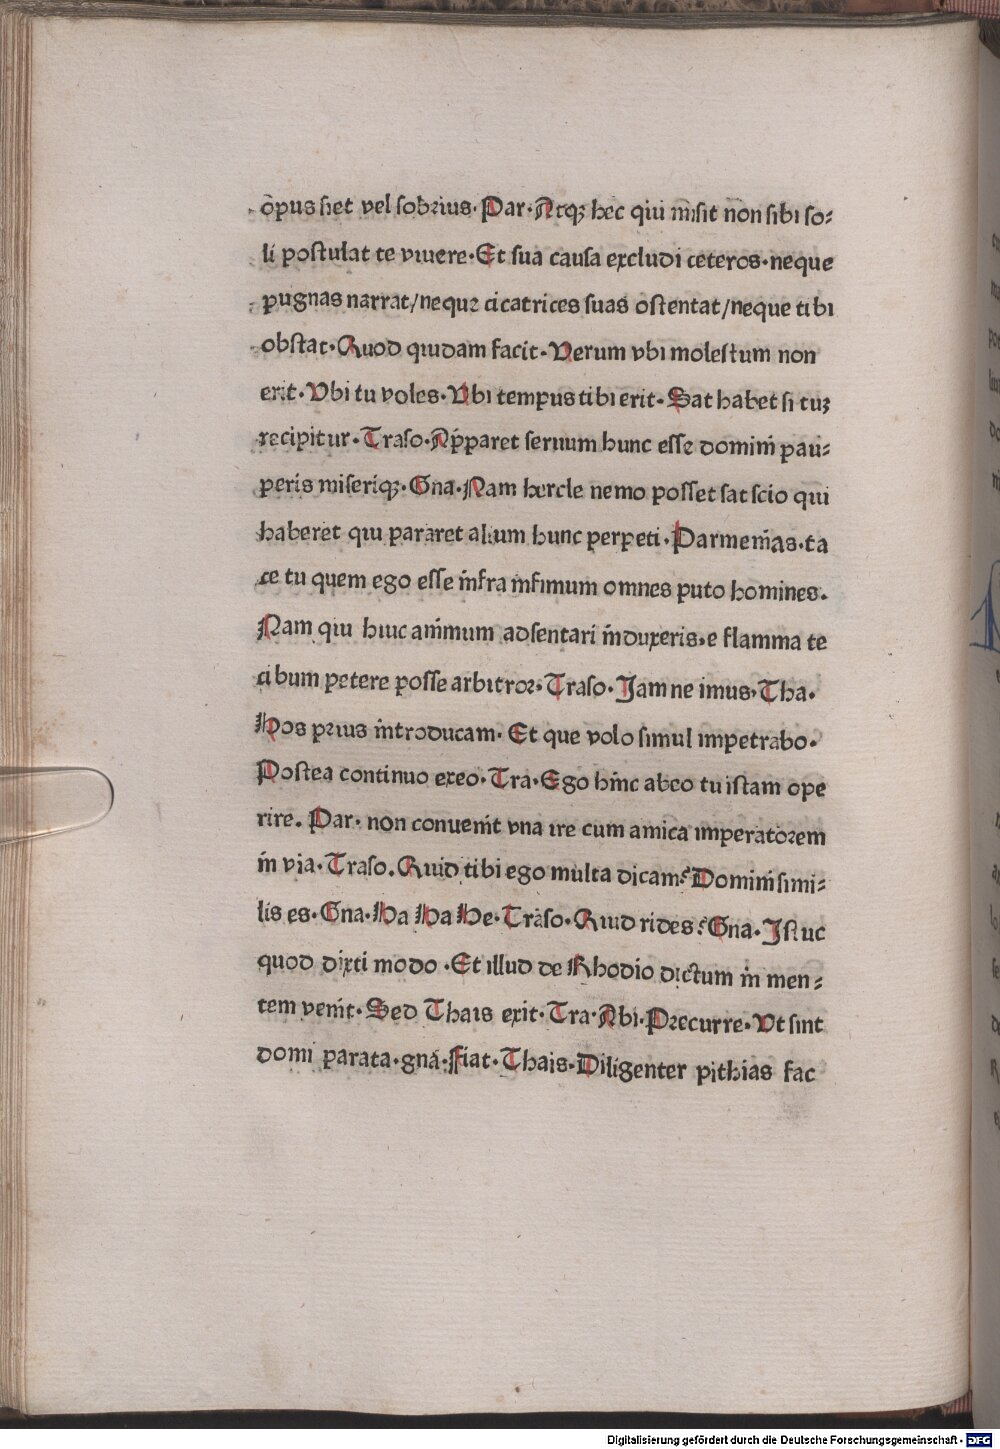 opus siet vel sobrius. Par. Atqȝ hec qui misit non sibi so⸗
li postulat te viuere. Et sua causa excludi ceteros. neque
pugnas narrat/neque cicatrices suas ostentat/neque tibi
obstat. Quod quidam facit. Verum vbi molestum non
erit. Vbi tu voles. Vbi tempus tibi erit. Sat habet si tuȝ
recipitur. Traso. Apparet seruum hunc esse domini pau⸗
peris miseriqȝ. Gna. Nam hercle nemo posset sat scio qui
haberet qui pararet alium hunc perpeti. Parmenias. ta
ce tu quem ego esse infra infimum omnes puto homines.
Nam qui huic animum adsentari induxeris. e flamma te
cibum petere posse arbitror. Traso. Jam ne imus. Tha.
Hos prius introducam. Et que volo simul impetrabo.
Postea continuo exeo. Tra. Ego hinc abeo tu istam ope
rire. Par. non conuenit vna ire cum amica imperatorem
in via. Traso. Quid tibi ego multa dicam? Domini simi⸗
lis es. Gna. Ha Ha He. Traso. Quid rides? Gna. Istuc
quod dixti modo. Et illud de Rhodio dictum in men⸗
tem venit. Sed Thais exit. Tra. Abi. Precurre. Vt sint
domi parata. gna. Fiat. Thais. Diligenter pithias fac
Digitalisierung gefördert durch die Deutsche Forschungsgemeinschaft - DFG